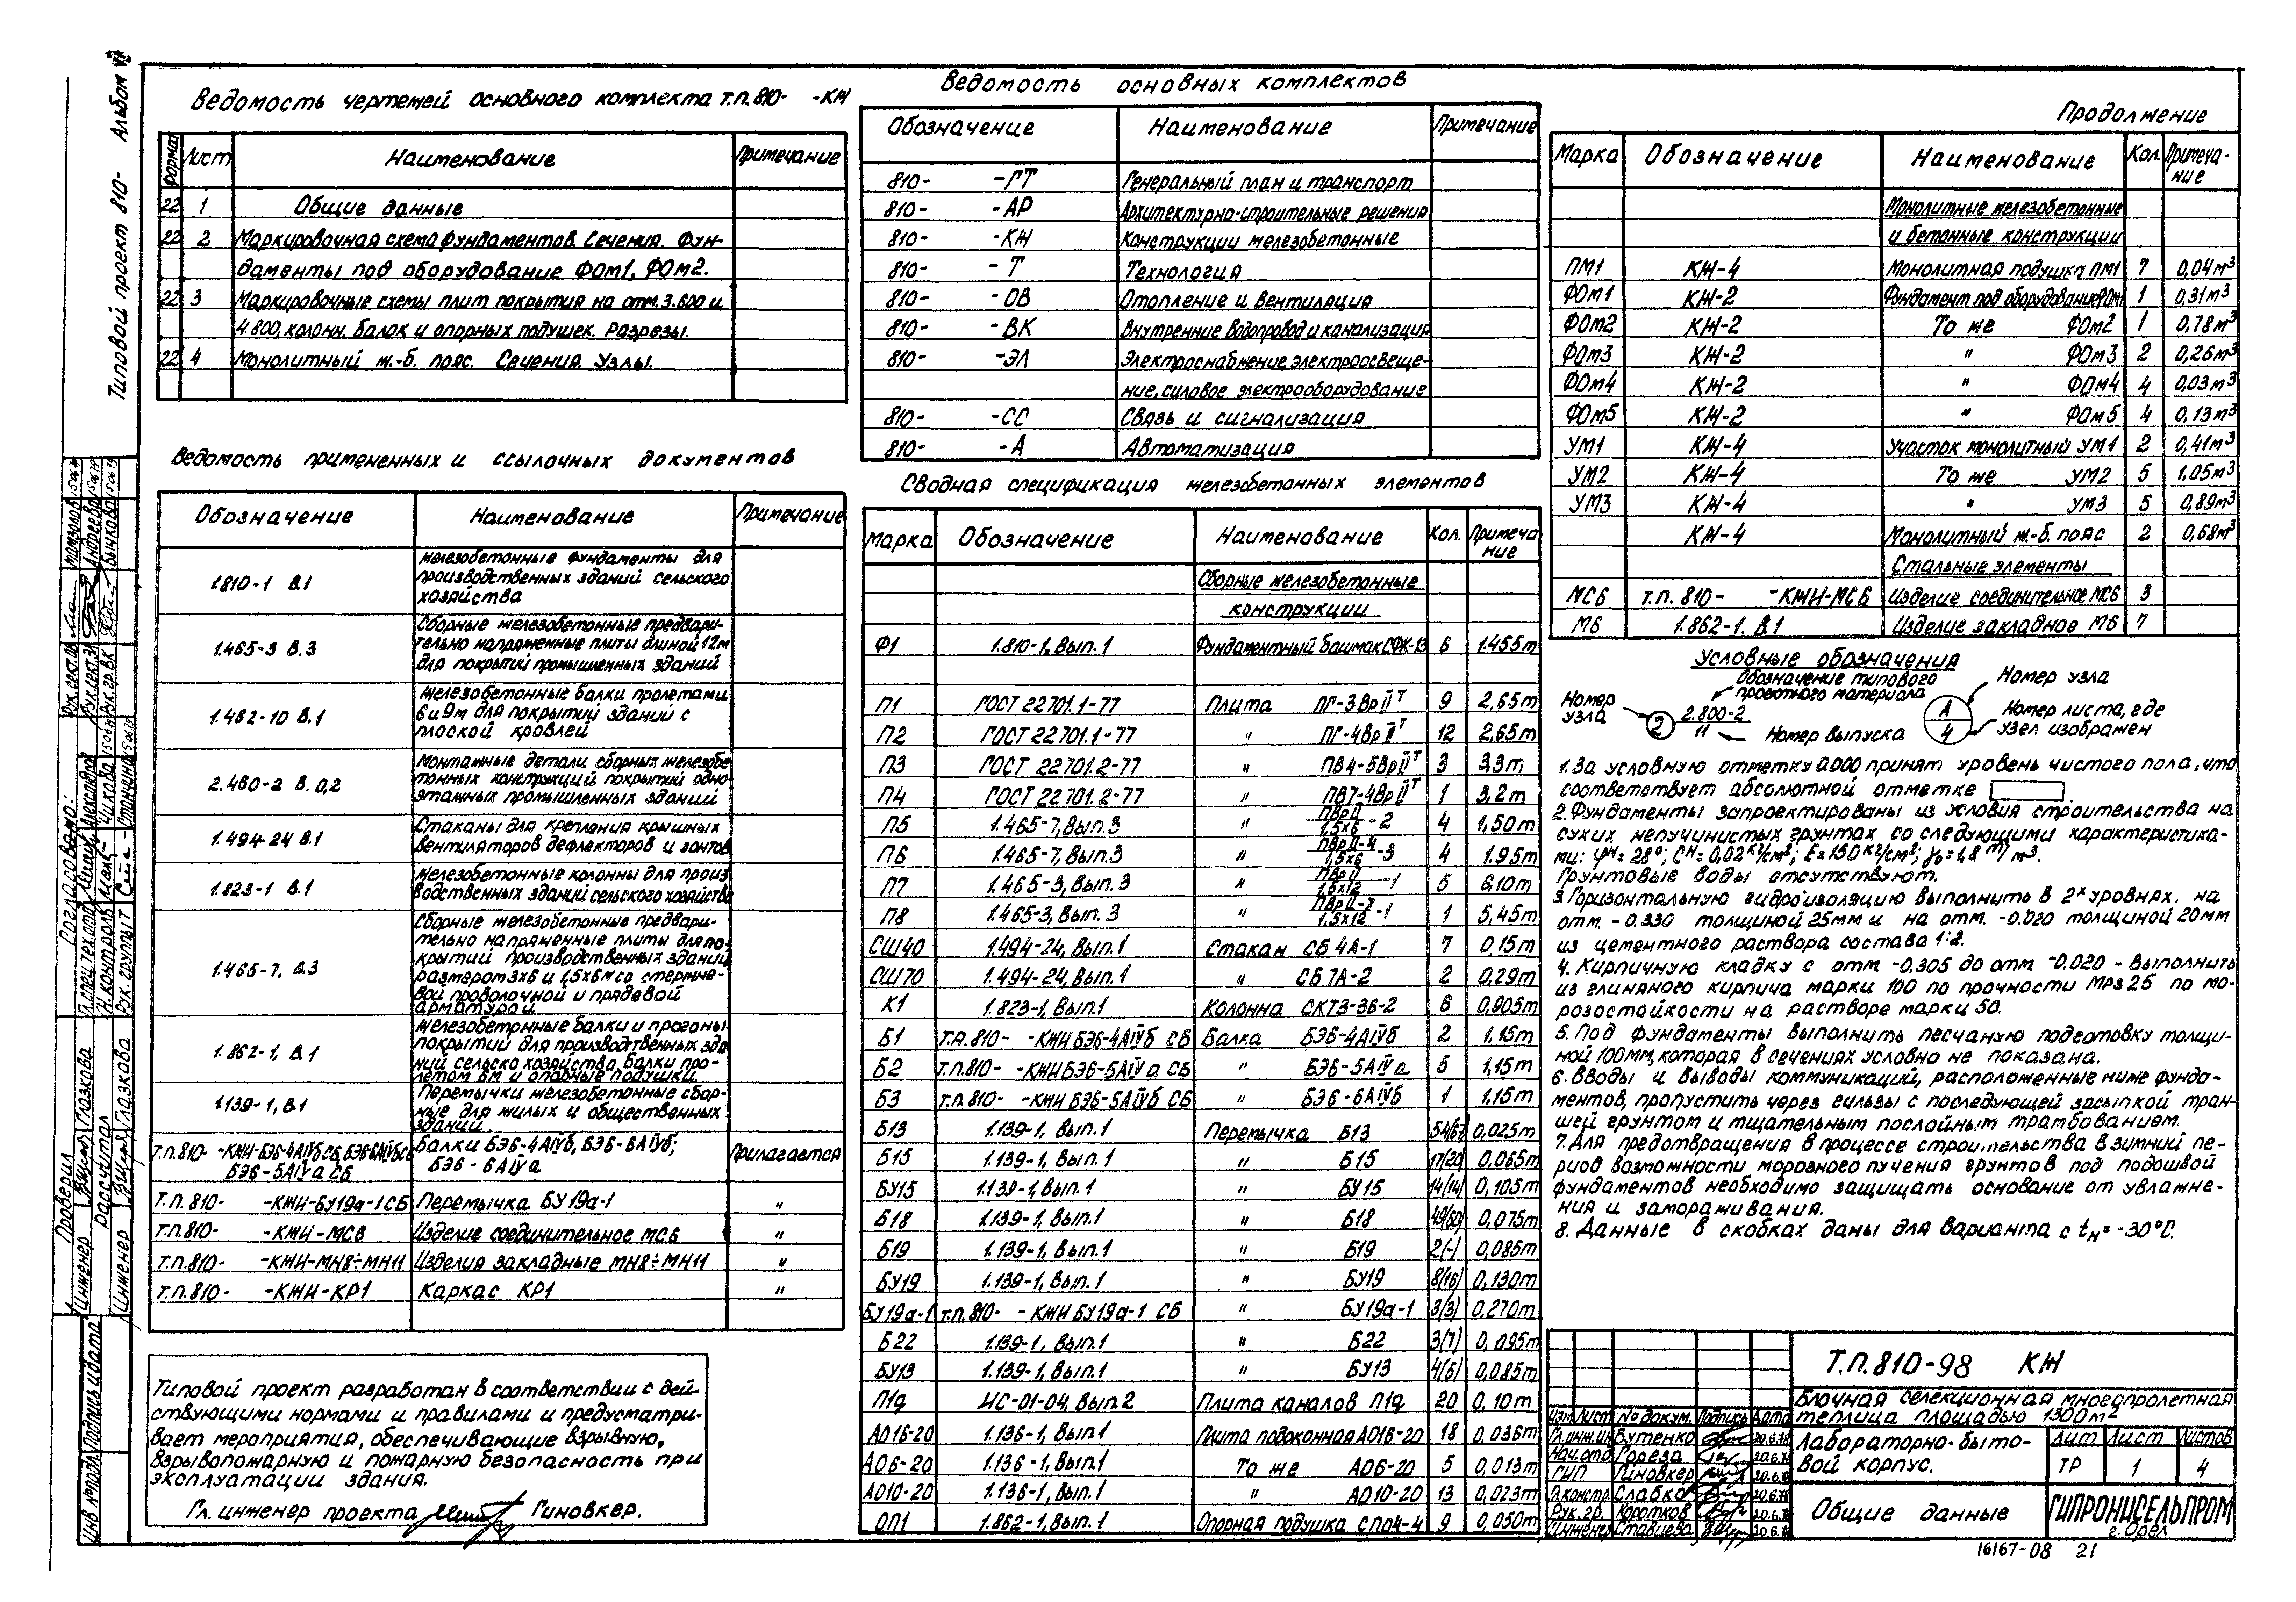 Типовой проект 810- Альбом
Ведомость чертежей основного комплекта т.п. 810- -КЖ
Формат Лист Наименование Примечание
22 1 Общие данные
22 2 Маркировочная схема фундаментов. Сечения. Фун-
даменты под оборудование ФОм1, ФОм2.
22 3 Маркировочные схемы плит покрытия на отм. 3.600 и
4.800, колонн. балок и опорных подушек. Разрезы.
22 4 Монолитный ж.-б. пояс. Сечения. Узлы.
Ведомость примененных и ссылочных документов
Обозначение Наименование Примечание
1.810-1 В.1 Железобетонные фундаменты для
производственных зданий сельского
хозяйства
1.465-3 В.3 Сборные железобетонные предвари-
тельно напряженные плиты длиной 12м
для покрытий промышленных зданий
1.462-10 В.1 Железобетонные балки пролетами
6 и 9м для покрытий зданий с
плоской кровлей
2.460-2 В.0,2 Монтажные детали сборных железобе
тонных конструкций покрытий одно-
этажных промышленных зданий
1.494-24 В.1 Стаканы для крепления крышных
вентиляторов дефлекторов и зонтов
1.823-1 В.1 Железобетонные колонны для произ
водственных зданий сельского хозяйства
1.465-7, В.3 Сборные железобетонные предвари-
тельно напряженные плиты для по-
крытий производственных зданий
размером 3х6 и 1,5х6м со стержне-
вой проволочной и прядевой
арматурой
1.862-1, В.1 Железобетонные балки и прогоны
покрытий для производственных зда
ний сельского хозяйства. Балки про-
летом 6м и опорные подушки.
1.139-1, В.1 Перемычки железобетонные сбор-
ные для жилых и общественных
зданий.
т.п.810- -КЖИ-БЭ6-4АIVб СБ, БЭ6-6АIVб СБ Балки БЭ6-4АIVб, БЭ6-6АIVб; Прилагается
БЭ6-5АIVа СБ БЭ6-6АIVа
т.п.810- -КЖИ-БУ19а-1СБ Перемычка БУ19а-1 "
т.п.810- -КЖИ-МС6 Изделие соединительное МС6 "
т.п.810- -КЖИ-МН8÷МН11 Изделия закладные МН8÷МН11 "
т.п.810- -КЖИ-КР1 Каркас КР1 "
Типовой проект разработан в соответствии с дей-
ствующими нормами и правилами и предусматри-
вает мероприятия, обеспечивающие взрывную,
взрывопожарную и пожарную безопасность при
эксплуатации здания.
Гл. инженер проекта Гиновкер.
Ведомость основных комплектов
Обозначение Наименование Примечание
810- -ГТ Генеральный план и транспорт
810- -АР Архитектурно-строительные решения
810- -КЖ Конструкции железобетонные
810- -Т Технология
810- -ОВ Отопление и вентиляция
810- -ВК Внутренние водопровод и канализация
810- -ЭЛ Электроснабжение, электроосвеще-
ние, силовое электрооборудование
810- -СС Связь и сигнализация
810- -А Автоматизация
Сводная спецификация железобетонных элементов
Марка Обозначение Наименование Кол. Примеча
ние
Сборные железобетонные
конструкции
Ф1 1.810-1, Вып. 1 Фундаментный башмак СФК-13 6 1.455т
П1 ГОСТ 22701.1-77 Плита ПГ-3ВрIIт 9 2,65т
П2 ГОСТ 22701.1-77 " ПГ-4ВрIIт 12 2,65т
П3 ГОСТ 22701.2-77 " ПВ4-5ВрIIт 3 3,3т
П4 ГОСТ 22701.2-77 " ПВ7-4ВрIIт 1 3,2т
П5 1.465-7, Вып. 3 " ПВрII/1,5х6-2 4 1,50т
П6 1.465-7, Вып.3 " ПВрII-4/1,5х6-3 4 1.95т
П7 1.465-3, Вып. 3 " ПВрII/1,5х12-1 5 6,10т
П8 1.465-3, Вып. 3 " ПВрII-7/1,5х12-1 1 5,45т
СШ40 1.494-24, Вып.1 Стакан СБ 4А-1 7 0,15т
СШ70 1.494-24, Вып.1 " СБ 7А-2 2 0,29т
К1 1.823-1, Вып.1 Колонна СКТ3-36-2 6 0,905т
Б1 т.п. 810- -КЖИ БЭ6-4АIVб СБ Балка БЭ6-4АIVб 2 1,15т
Б2 т.п.810- -КЖИ БЭ6-5АIVа СБ " БЭ6-5АIVа 5 1,15т
Б3 т.п.810- -КЖИ БЭ6-5АIVб СБ " БЭ6-6АIVб 1 1,15т
Б13 1.139-1, Вып. 1 Перемычка Б13 54(67) 0,025т
Б15 1.139-1, Вып. 1 " Б15 17(20) 0,065т
БУ15 1.139-1, Вып. 1 " БУ15 14(14) 0,105т
Б18 1.139-1, Вып. 1 " Б18 49(60) 0,075т
Б19 1.139-1, Вып. 1 " Б19 2(-) 0,085т
БУ19 1.139-1, Вып. 1 " БУ19 8(16) 0,130т
БУ19а-1 т.п. 810- -КЖИ БУ19а-1 СБ " БУ19а-1 3(3) 0,270т
Б22 1.139-1, Вып.1 " Б22 3(7) 0,095т
БУ13 1.139-1, Вып.1 " БУ13 4(5) 0,085т
П1д ИС-01-04, Вып.2 Плита каналов П1д 20 0,10т
АО16-20 1.136-1, Вып.1 Плита подоконная АО16-20 18 0,036т
АО6-20 1.136-1, Вып.1 То же АО6-20 5 0,013т
АО10-20 1.136-1, Вып.1 " АО10-20 13 0,023т
ОП1 1.862-1, Вып. 1 Опорная подушка СПО4-4 9 0,050т
Продолжение
Марка Обозначение Наименование Кол. Примеча-
ние
Монолитные железобетонные
и бетонные конструкции
ПМ1 КЖ-4 Монолитная подушка ПМ1 7 0,04м³
ФОм1 КЖ-2 Фундамент под оборудование ФОм1 1 0,31м³
ФОм2 КЖ-2 То же ФОм2 1 0,78м³
ФОм3 КЖ-2 " ФОм3 2 0,26м³
ФОм4 КЖ-2 " ФОм4 4 0,03м³
ФОм5 КЖ-2 " ФОм5 4 0,13м³
УМ1 КЖ-4 Участок монолитный УМ1 2 0,41м³
УМ2 КЖ-4 То же УМ2 5 1.05м³
УМ3 КЖ-4 " УМ3 5 0,89м³
КЖ-4 Монолитный ж.-б. пояс 2 0,68м³
Стальные элементы
МС6 т.п. 810- -КЖИ-МС6 Изделие соединительное МС6 3
М6 1.862-1. В1 Изделие закладное М6 7
Условные обозначения
Обозначение типового
проектного материала
Номер узла
2 2.800-2
11
Номер выпуска
А
4
Номер узла
Номер листа, где
узел изображен
1. За условную отметку 0.000 принят уровень чистого пола, что
соответствует абсолютной отметке
2. Фундаменты запроектированы из условия строительства на
сухих непучинистых грунтах со следующими характеристика-
ми: φн = 28°; Сн = 0,02 кг/см²; Е = 150 кг/см²; γ₀ = 1,8 т/м³.
Грунтовые воды отсутствуют.
3. Горизонтальную гидроизоляцию выполнить в 2х уровнях. на
отм. -0.330 толщиной 25мм и на отм. -0.020 толщиной 20мм
из цементного раствора состава 1:2.
4. Кирпичную кладку с отм. -0.305 до отм. -0.020 - выполнить
из глиняного кирпича марки 100 по прочности Мрз 25 по мо-
розостойкости на растворе марки 50.
5. Под фундаменты выполнить песчаную подготовку толщи-
ной 100мм, которая в сечениях условно не показана.
6. Вводы и выводы коммуникаций, расположенные ниже фунда-
ментов, пропустить через гильзы с последующей засыпкой тран-
шей грунтом и тщательным послойным трамбованием.
7. Для предотвращения в процессе строительства в зимний пе-
риод возможности морозного пучения грунтов под подошвой
фундаментов необходимо защищать основание от увлажне-
ния и замораживания.
8. Данные в скобках даны для варианта с tн = -30°С.
Т.П. 810-98 КЖ
Блочная селекционная многопролетная
теплица площадью 1300м²
Изм Лист № докум. Подпись Дата
Гл.инж.ин Бутенко 20.6.78
Нач. отд. Гореза 20.6.78
ГИП Гиновкер 20.6.78
Гл.констр Слабко 20.6.78
Рук. гр. Коротков 20.6.78
Инженер Ставцева 20.6.78
Лабораторно-быто-
вой корпус.
Лит Лист Листов
ТР 1 4
Общие данные
ГИПРОНИСЕЛЬПРОМ
г. Орел
16167-08 21
Согласовано:
Рук. сект. ОВ
Рук. сект. ЭЛ Андреева
Рук. гр. ВК Бычкова
Гл. спец. тех. отд
Н. контроль
Рук. группы Т
Проверил
Инженер Глазкова
Рассчитал
Инженер Глазкова
Инв № подл. Подпись и дата